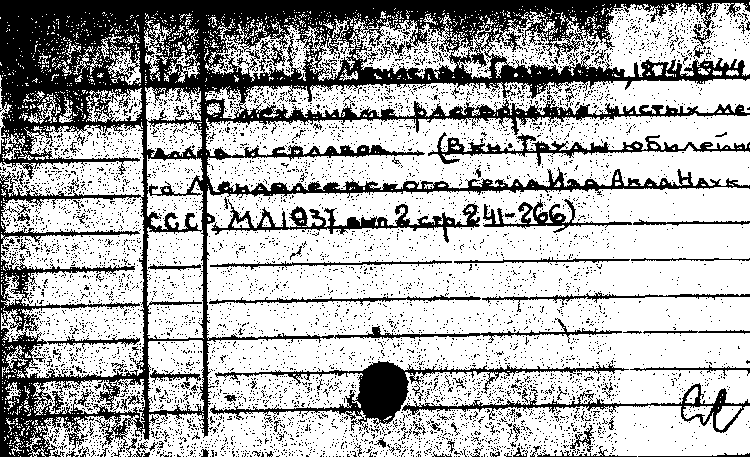 Мечислав Гаврилович, 1874-1944
О механизме растворения чистых ме-
таллов и сплавов. (В кн: Труды юбилейно
го Менделеевского съезда Изд. Акад. Наук
СССР, МЛ 1937, вып 2, стр. 241-266)